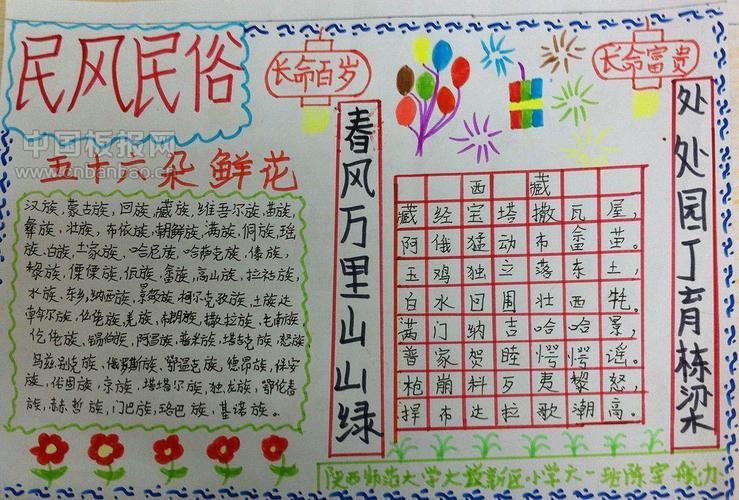 民风民俗
中国板报网
www.cnbanbao.cn
五十一朵鲜花
汉族，蒙古族，回族，藏族，维吾尔族，苗族，
彝族，壮族，布依族，朝鲜族，满族，侗族，瑶
族，白族，土家族，哈尼族，哈萨克族，傣族，
黎族，傈僳族，佤族，畲族，高山族，拉祜族，
水族，东乡，纳西族，景颇族，柯尔克孜族，土族，达
斡尔族，仫佬族，羌族，布朗族，撒拉族，毛南族，
仡佬族，锡伯族，阿昌族，普米族，塔吉克族，怒族，
乌兹别克族，俄罗斯族，鄂温克族，德昂族，保安
族，裕固族，京族，塔塔尔族，独龙族，鄂伦春
族，赫哲族，门巴族，珞巴族，基诺族。
长命百岁
春风万里山山绿
西藏
藏经宝塔撒瓦屋，
阿俄猛动布畲苗。
玉鸡独立落东土，
白水回围壮西牦。
满门纳吉哈哈景，
普家贺睦愕愕谣。
枪崩料歹夷黎怒，
捍布达拉歌潮高。
长命富贵
处处园丁育栋梁
陕西师范大学大校新区小学六一班陈宇航力